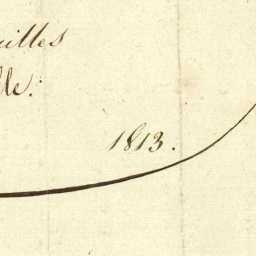 uilles
lle.
1813.